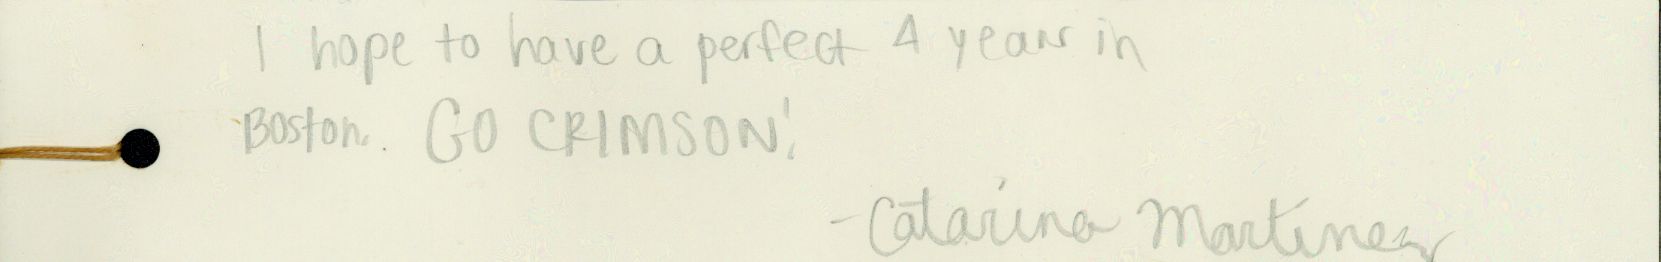 I hope to have a perfect 4 years in
Boston. GO CRIMSON!
-Catarina Martinez